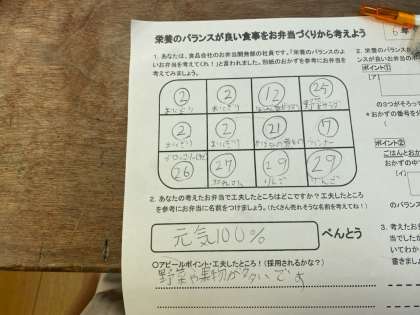 栄養のバランスが良い食事をお弁当づくりから考えよう
6年
1. あなたは、食品会社のお弁当開発部の社員です。「栄養のバランスのよ
いお弁当を考えてくれ!」と言われました。別紙のおかずを参考にお弁当を
考えてみましょう。
② ② ⑫ ㉕
おにぎり おにぎり 野菜サラダ
② ② ㉑ ⑰
おにぎり おにぎり ウィンナー
㉖ ㉗ ㉙ ㉙
ブロッコリー みかん りんご りんご
2. あなたの考えたお弁当で工夫したところはどこですか?工夫したところ
を参考にお弁当に名前をつけましょう。(たくさん売れそうな名前を考えてね!)
元気100% べんとう
○アピールポイント・工夫したところ!(採用されるかな?)
野菜や果物が多いです
2. 栄養のバラン
ンスが良いお弁
ポイント①
[ア]
の3つがそろって
*おかずの番号を分
ポイント②
ごはんとおか
おかずの中
(イ)
のバラン
3. 考えたお弁
当でしたか
いてわか
書きましょ